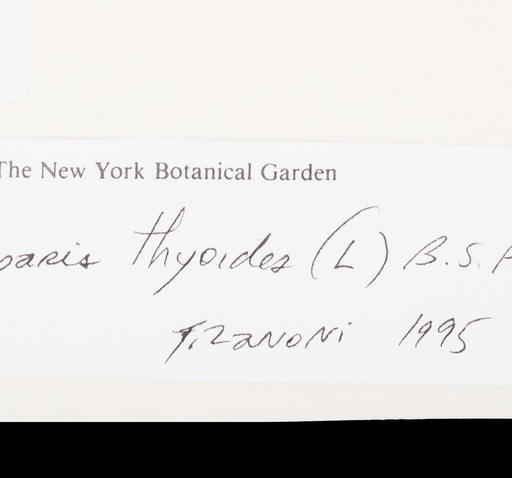 The New York Botanical Garden
paris thyoides (L) B.S.P
T. Zanoni 1995